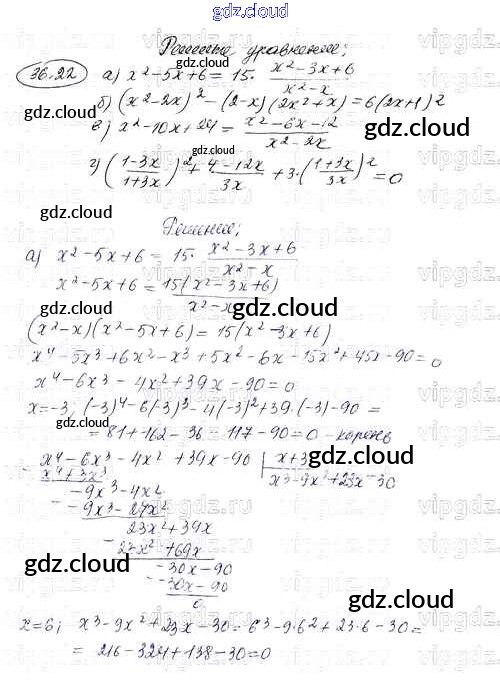 gdz.cloud
Решите уравнение:
36.22 а) x²-5x+6 = 15·(x²-3x+6)/(x²-x)
б) (x²-2x)²-(2-x)(2x²+x)=6(2x+1)²
в) x²-10x+24 = (x²-6x-12)/(x²-2x)
г) ((1-3x)/(1+3x))² + (4-12x)/3x + 3·((1+3x)/3x)² = 0
gdz.cloud gdz.cloud
Решение:
а) x²-5x+6 = 15·(x²-3x+6)/(x²-x)
x²-5x+6 = 15(x²-3x+6)/(x²-x)
gdz.cloud
(x²-x)(x²-5x+6)=15(x²-3x+6)
x⁴-5x³+6x²-x³+5x²-6x-15x²+45x-90=0
x⁴-6x³-4x²+39x-90=0
x=-3; (-3)⁴-6(-3)³-4(-3)²+39·(-3)-90=
=81+162-36-117-90=0-корень
x⁴-6x³-4x²+39x-90 | x+3
gdz.cloud
x⁴+3x³ x³-9x²+23x-30
-9x³-4x²
-9x³-27x²
23x²+39x
23x²+69x
-30x-90
gdz.cloud
-30x-90
0
gdz.cloud
x=6; x³-9x²+23x-30=6³-9·6²+23·6-30=
=216-324+138-30=0
gdz.cloud